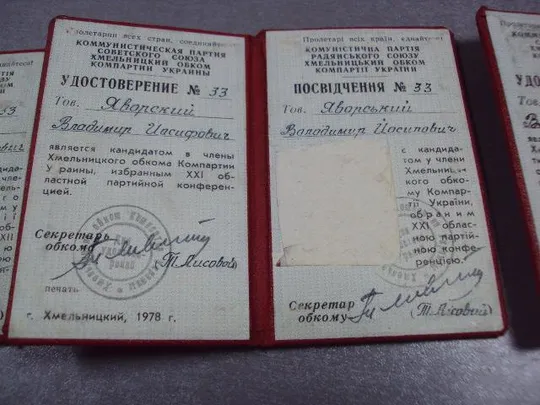 Пролетарии всех стран, соединяйтесь!
КОММУНИСТИЧЕСКАЯ ПАРТИЯ
СОВЕТСКОГО СОЮЗА
ХМЕЛЬНИЦКИЙ ОБКОМ
КОМПАРТИИ УКРАИНЫ
УДОСТОВЕРЕНИЕ № 33
Тов. Яворский
Владимир Иосифович
является кандидатом в члены
Хмельницкого обкома Компартии
У раины, избранным XXI об-
ластной партийной конферен-
цией.
Секретарь
обкому
(Т. Лисовой)
печать
г. Хмельницкий, 1978 г.
Пролетарі всіх країн, єднайтеся!
КОМУНІСТИЧНА ПАРТІЯ
РАДЯНСЬКОГО СОЮЗУ
ХМЕЛЬНИЦЬКИЙ ОБКОМ
КОМПАРТІЇ УКРАЇНИ
ПОСВІДЧЕННЯ № 33
Тов. Яворський
Володимир Йосипович
є кандида-
том у члени
Хмельниць-
кого обко-
му Компар-
тії України,
обраним
XXI облас-
ною партій-
ною кон-
ференцією.
Секретар
обкому
(Т. Лісовий)